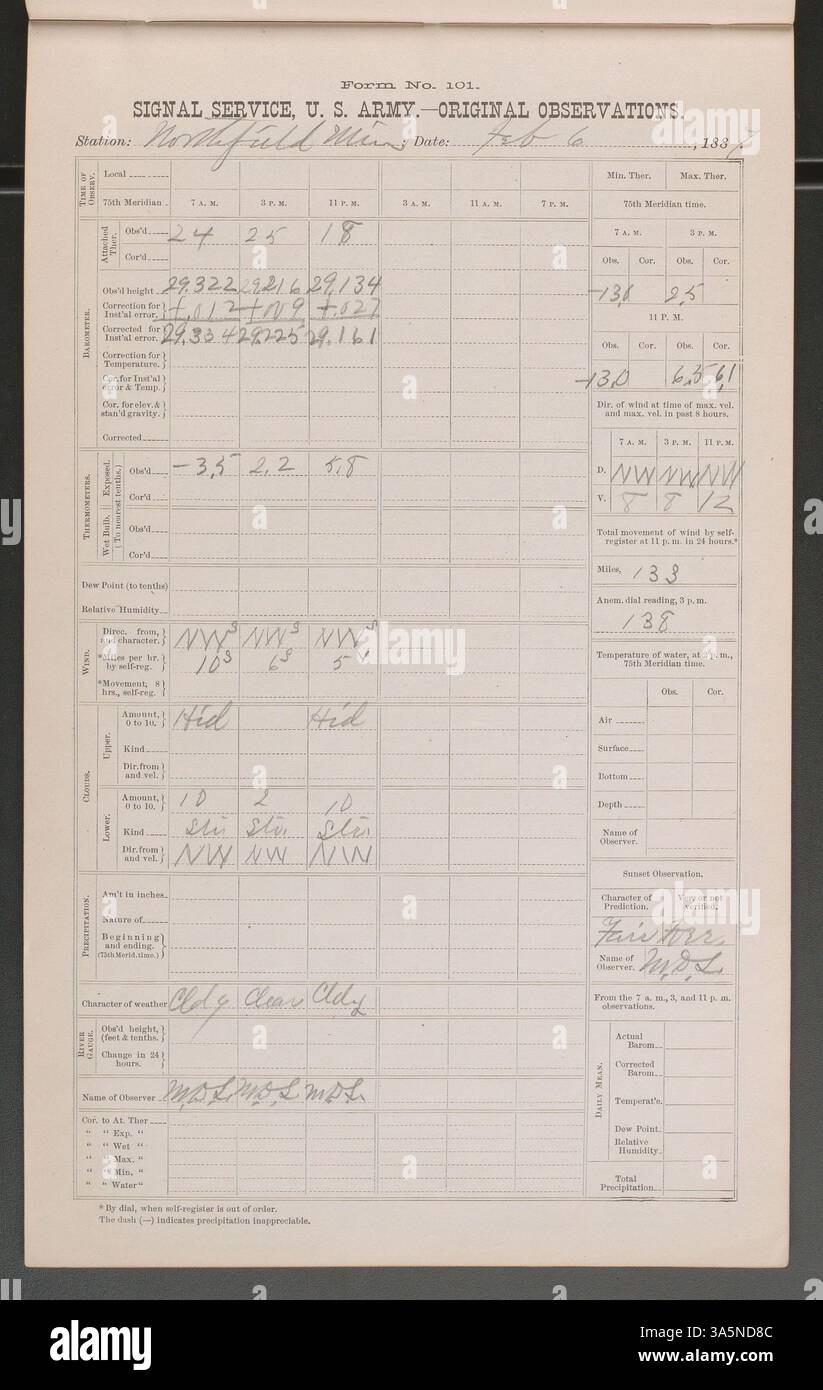 Form No. 101.
SIGNAL SERVICE, U. S. ARMY.—ORIGINAL OBSERVATIONS.
Station: Northfield Minn; Date: Feb 6, 1887.
TIME OF OBSERV.
Local
75th Meridian 7 A. M. 3 P. M. 11 P. M. 3 A. M. 11 A. M. 7 P. M.
Attached Ther.
Obs'd 24 25 18
Cor'd
BAROMETER.
Obs'd height 29.322 29.216 29.134
Correction for Inst'al error. +.012 +.009 +.027
Corrected for Inst'al error. 29.334 29.225 29.161
Correction for Temperature.
Cor. for Inst'al error & Temp.
Cor. for elev. & stan'd gravity.
Corrected
THERMOMETERS.
(To nearest tenths.)
Exposed.
Obs'd -3.5 2.2 5.8
Cor'd
Wet Bulb.
Obs'd
Cor'd
Dew Point (to tenths)
Relative Humidity
WIND.
Direc. from, and character. NW s NW s NW s
*Miles per hr. by self-reg. 10 s 6 s 5
*Movement, 8 hrs., self-reg.
CLOUDS.
Upper.
Amount, 0 to 10. Hid Hid
Kind
Dir. from and vel.
Lower.
Amount, 0 to 10. 10 2 10
Kind Str. Str. Str.
Dir. from and vel. NW NW NW
PRECIPITATION.
Am't in inches
Nature of
Beginning and ending. (75th Merid. time.)
Character of weather Cldy Clear Cldy
RIVER GAUGE.
Obs'd height, (feet & tenths.)
Change in 24 hours.
Name of Observer M.D.S. M.D.S. M.D.S.
Cor. to At. Ther
“ “ Exp. “
“ “ Wet “
“ “ Max. “
“ “ Min. “
“ “ Water “
* By dial, when self-register is out of order.
The dash (—) indicates precipitation inappreciable.
Min. Ther. Max. Ther.
75th Meridian time.
7 A. M. 3 P. M.
Obs. Cor. Obs. Cor.
-13.0 2.5
11 P. M.
Obs. Cor. Obs. Cor.
-13.0 6.5 6.1
Dir. of wind at time of max. vel. and max. vel. in past 8 hours.
7 A. M. 3 P. M. 11 P. M.
D. NW NW NW
V. 8 8 12
Total movement of wind by self-register at 11 p. m. in 24 hours.*
Miles, 133
Anem. dial reading, 3 p. m.
138
Temperature of water, at 3 p. m., 75th Meridian time.
Obs. Cor.
Air
Surface
Bottom
Depth
Name of Observer.
Sunset Observation.
Character of Prediction. Very or not verified.
Fair
Name of Observer. M.D.S.
From the 7 a. m., 3, and 11 p. m. observations.
DAILY MEAN.
Actual Barom.
Corrected Barom.
Temperat'e.
Dew Point.
Relative Humidity.
Total Precipitation.
alamy
Image ID: 3A5ND8C
www.alamy.com